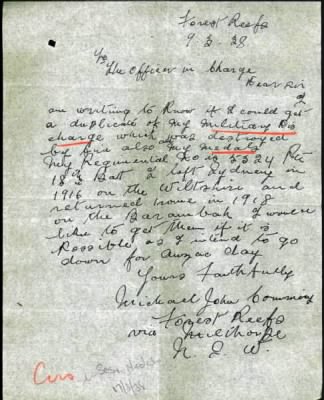 Forest Reefs
9.3.28
To
The Officer in Charge
Dear Sir
I
am writing to know if I could get
a duplicate of my Military Dis
charge which was destroyed
by fire also my medals
My Regimental No is 5324
18th Batt I left Sydney in
1916 on the Wiltshire and
returned home in 1918
on the Barambah I would
like to get them if it is
Possible as I intend to go
down for Anzac day
Yours Faithfully
Michael John
Forest Reefs
via Millthorpe
N.S.W.